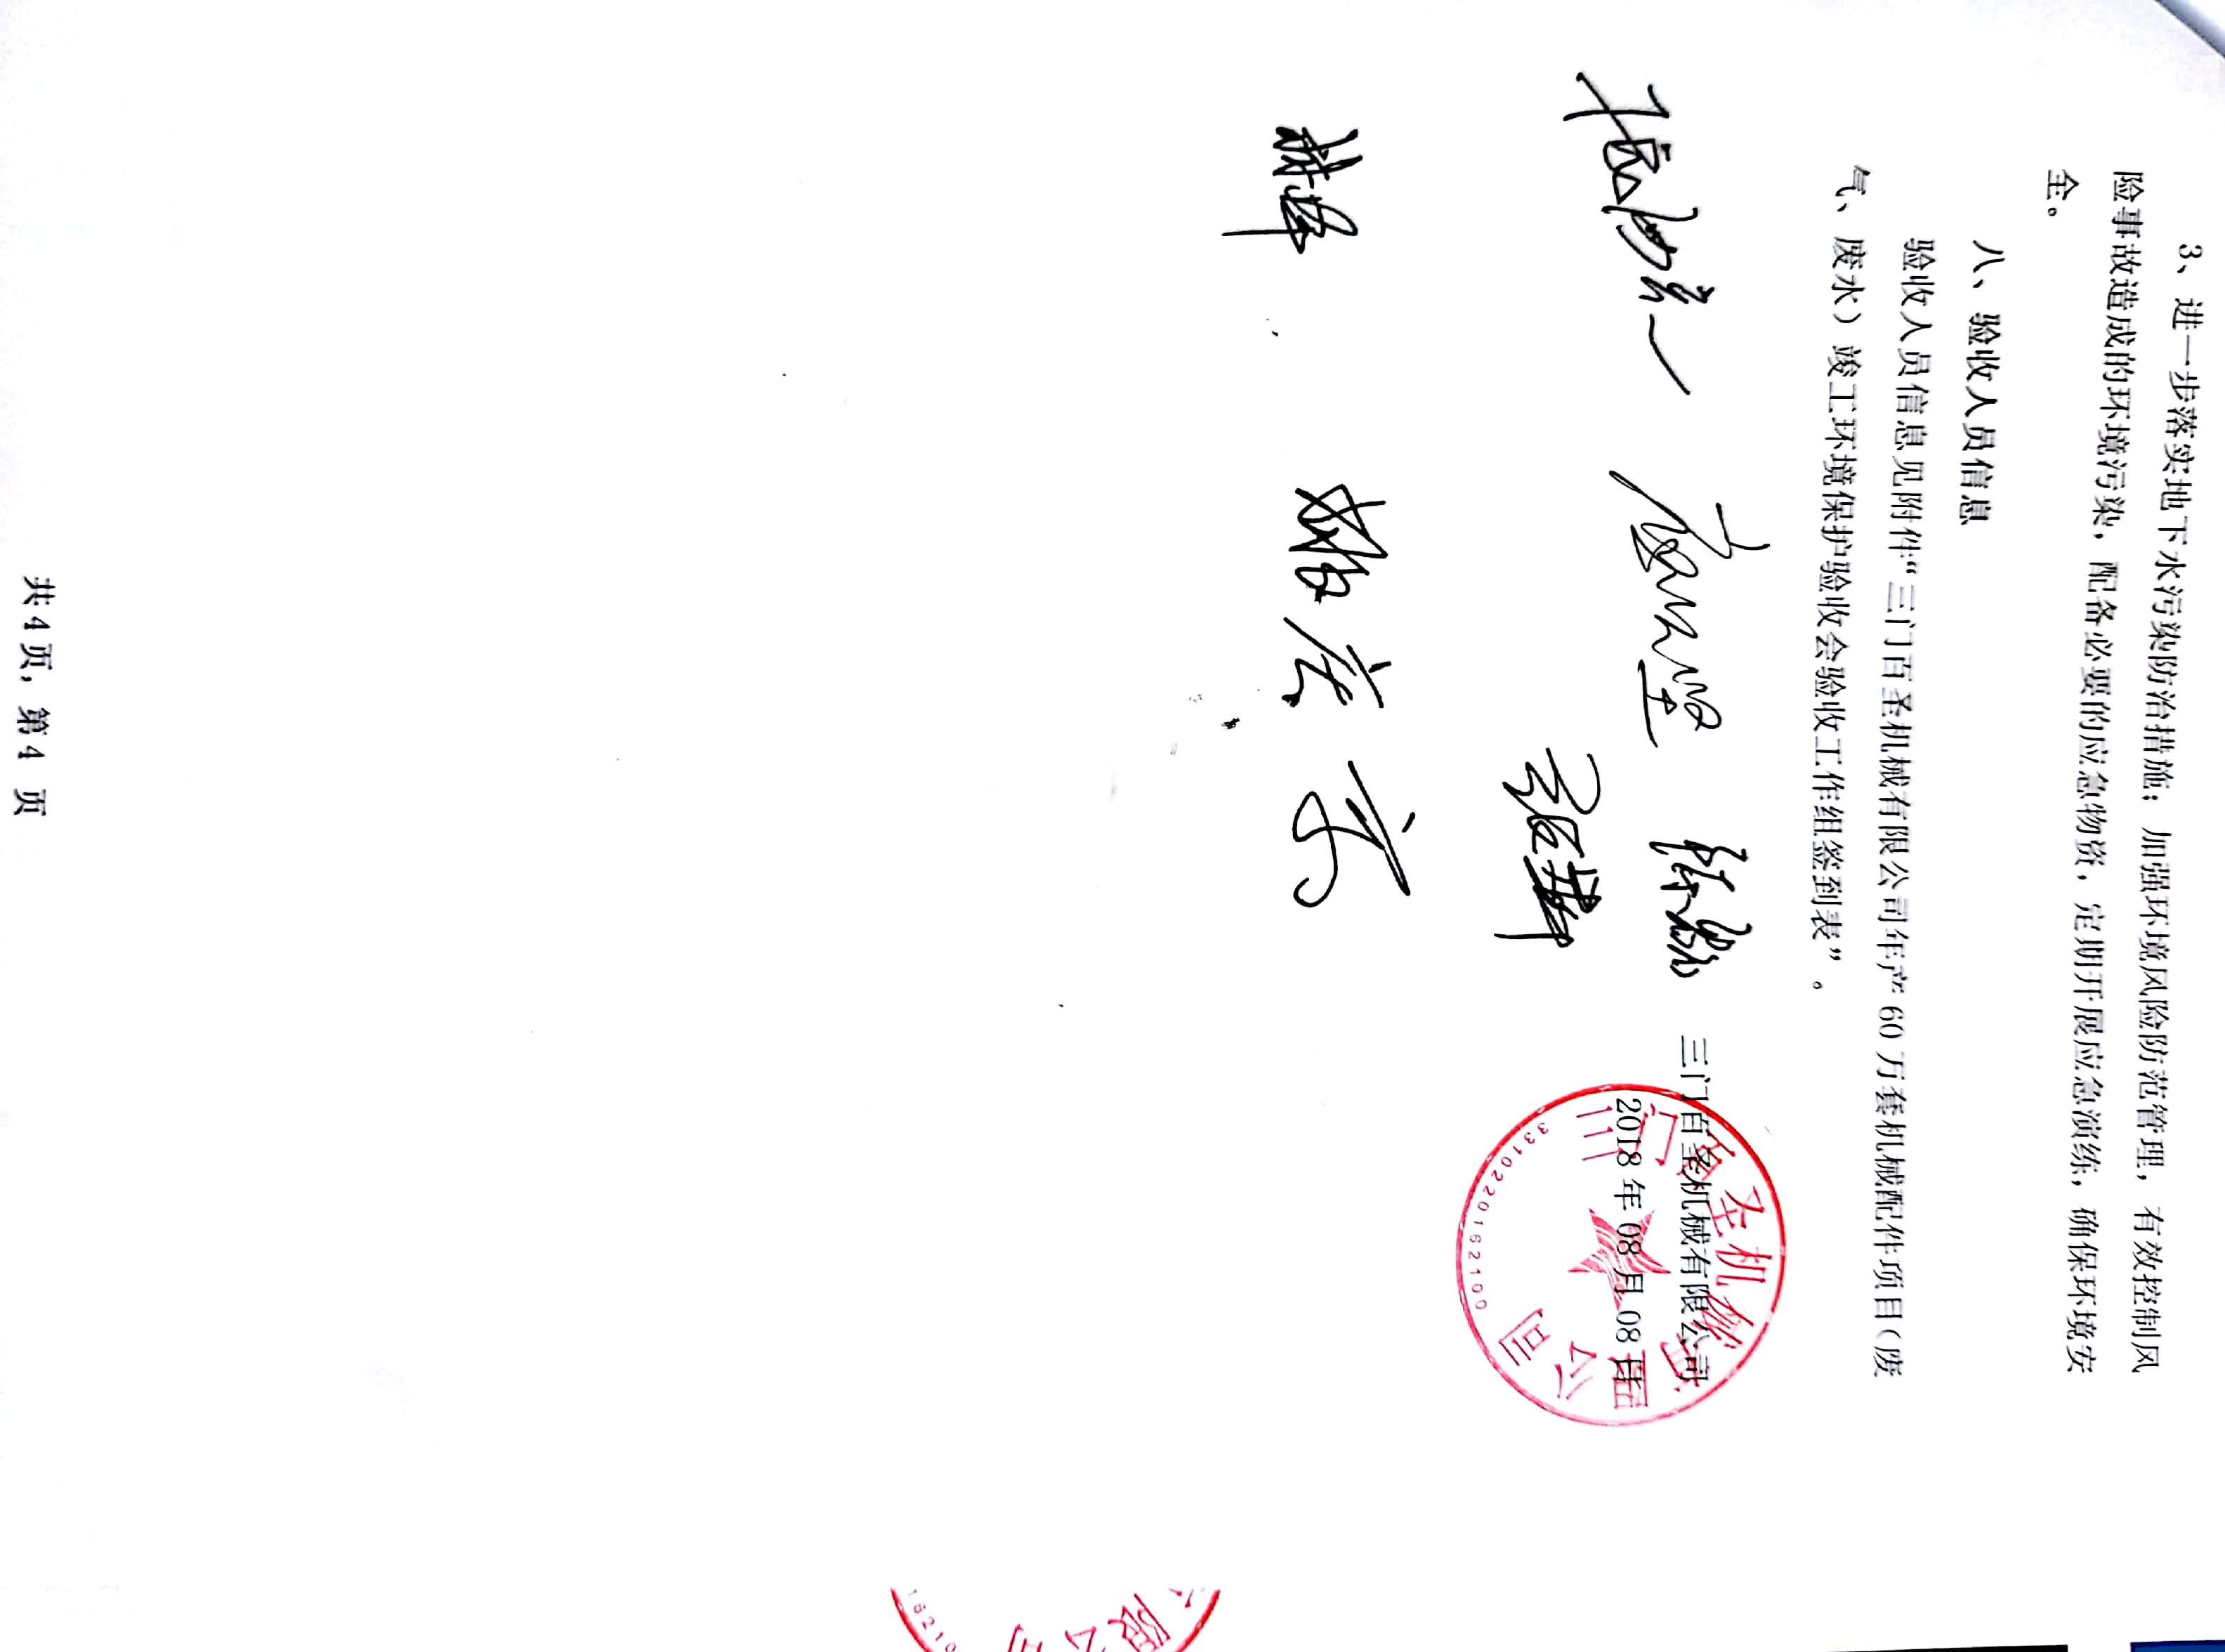 3、进一步落实地下水污染防治措施；加强环境风险防范管理，有效控制风
险事故造成的环境污染，配备必要的应急物资，定期开展应急演练，确保环境安
全。
八、验收人员信息
验收人员信息见附件“三门百圣机械有限公司年产 60 万套机械配件项目（废
气、废水）竣工环境保护验收会验收工作组签到表”。
三门百圣机械有限公司
2018 年 08 月 08 日
三门百圣机械有限公司
3310220162100
限公司
16210
共 4 页，第 4 页